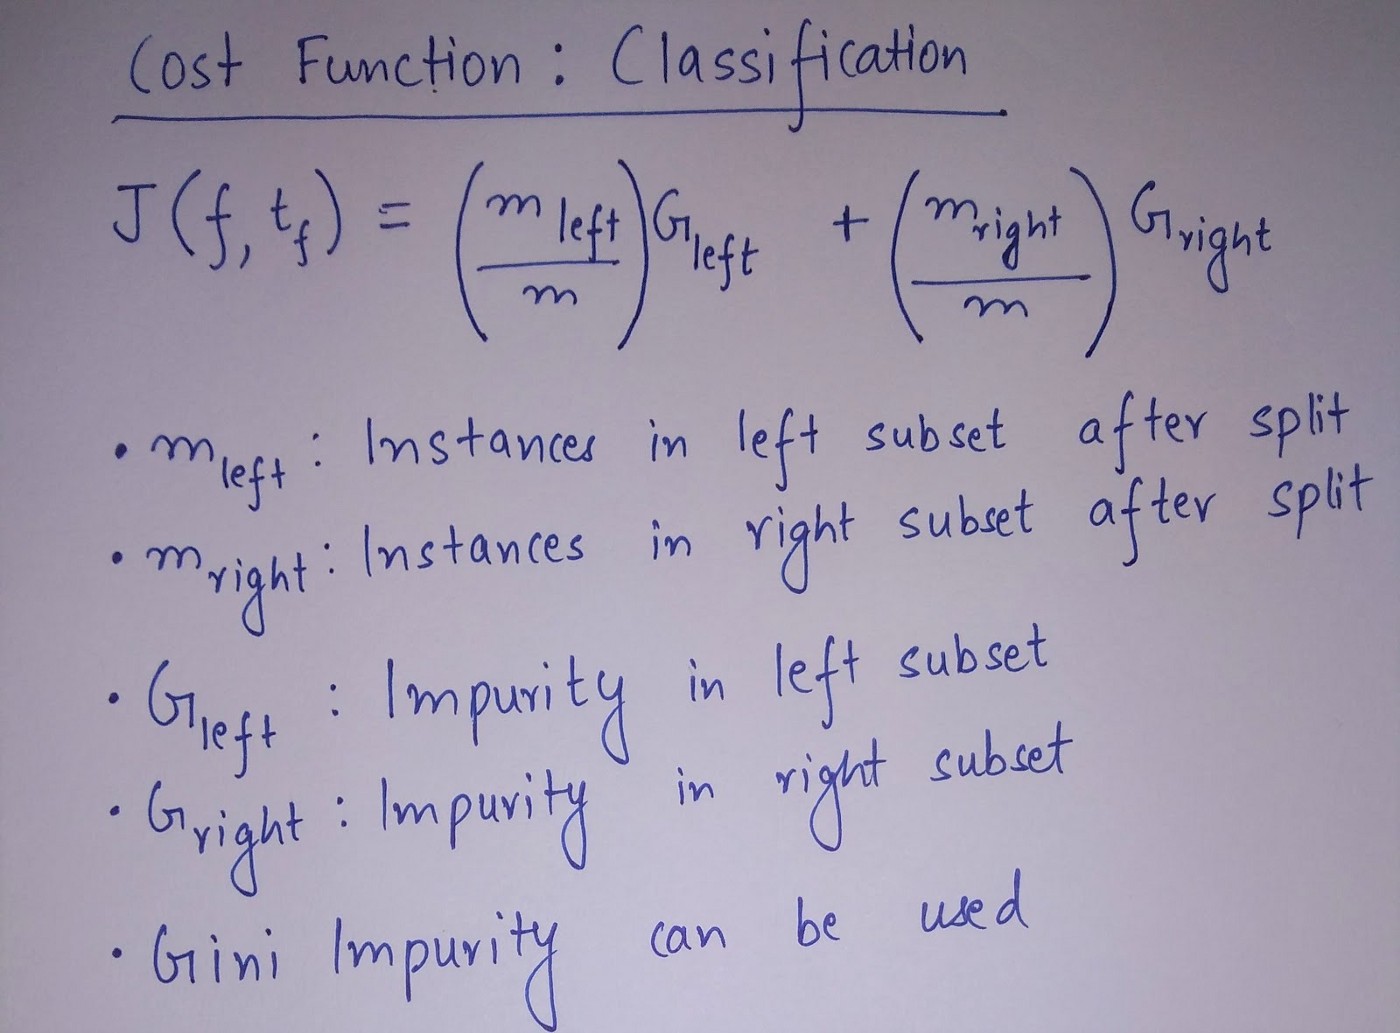 Cost Function : Classification
J(f, t_f) = (m_left / m) G_left + (m_right / m) G_right
• m_left : Instances in left subset after split
• m_right : Instances in right subset after split
• G_left : Impurity in left subset
• G_right : Impurity in right subset
• Gini Impurity can be used